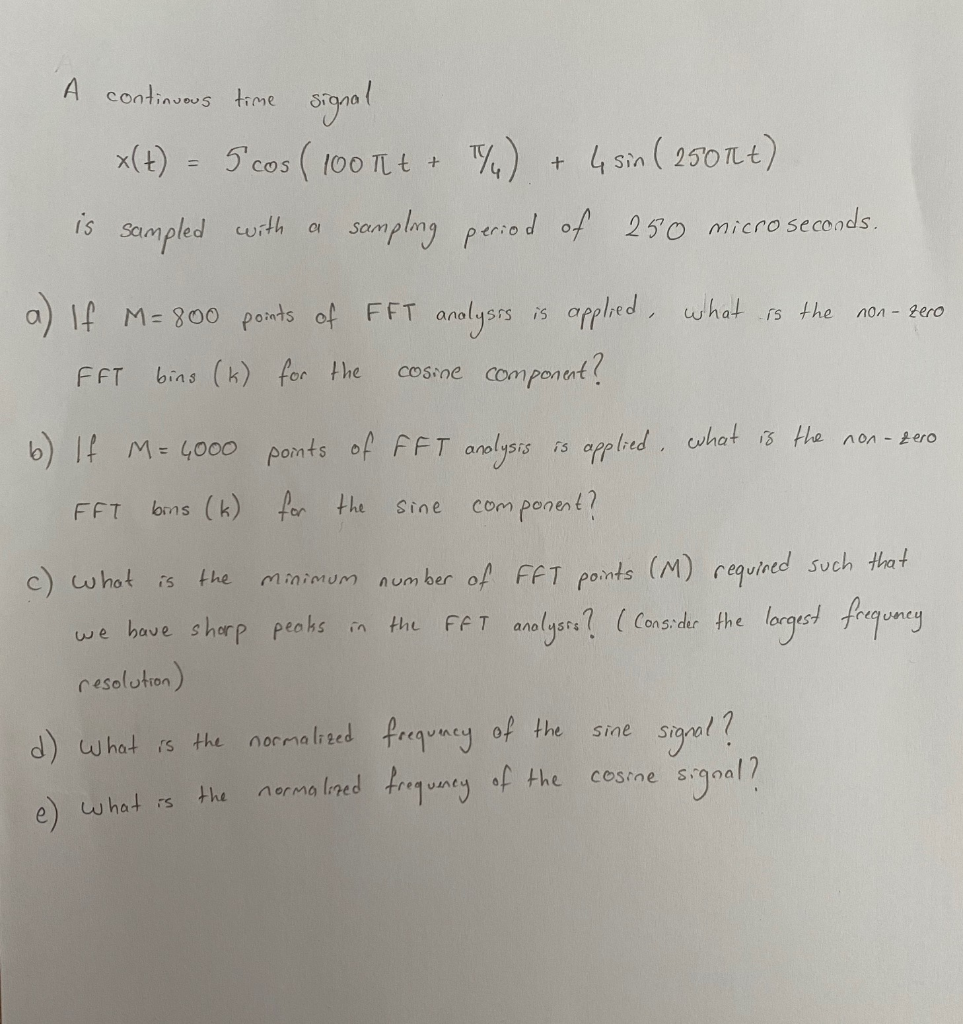 A continuous time signal
x(t) = 5 cos ( 100 π t + π/4 ) + 4 sin ( 250 π t )
is sampled with a sampling period of 250 microseconds.
a) If M = 800 points of FFT analysis is applied, what is the non-zero
FFT bins (k) for the cosine component?
b) If M = 4000 points of FFT analysis is applied, what is the non-zero
FFT bins (k) for the sine component?
c) what is the minimum number of FFT points (M) required such that
we have sharp peaks in the FFT analysis? (Consider the largest frequency
resolution)
d) What is the normalized frequency of the sine signal?
e) what is the normalized frequency of the cosine signal?